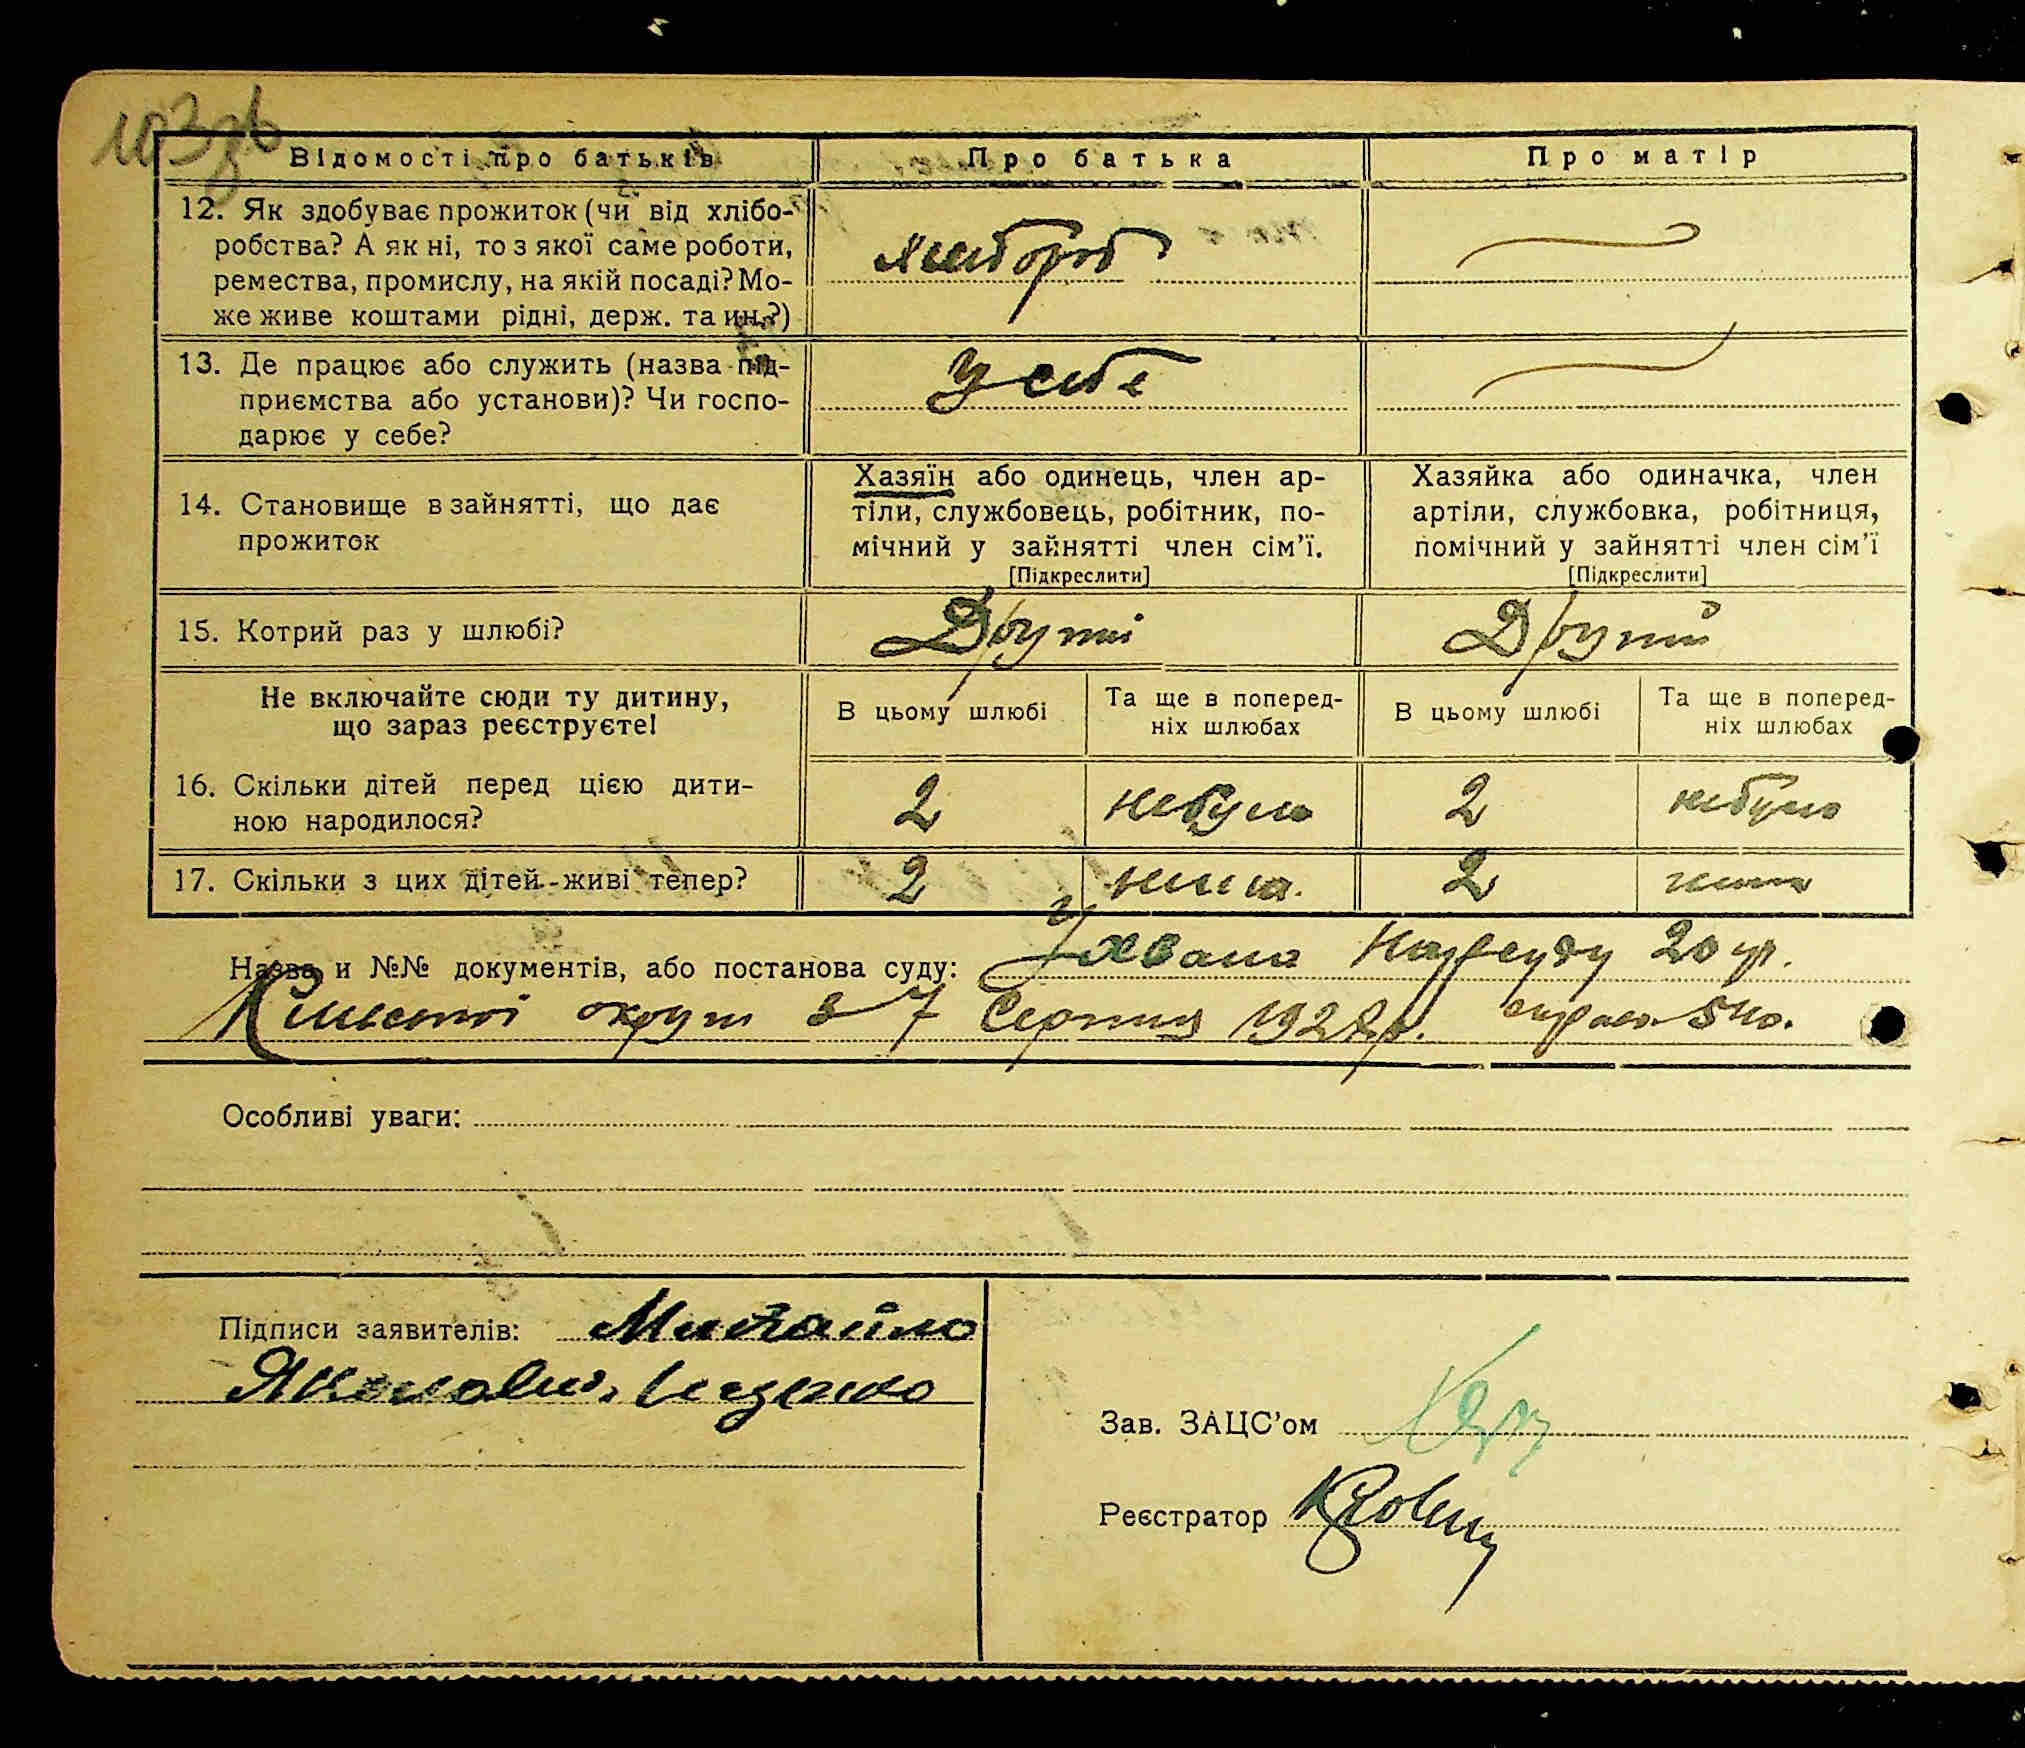 103зв
Відомості про батьків
Про батька
Про матір
12. Як здобуває прожиток (чи від хлібо-
робства? А як ні, то з якої саме роботи,
ремества, промислу, на якій посаді? Мо-
же живе коштами рідні, держ. та ин.?)
хлібороб
13. Де працює або служить (назва під-
приємства або установи)? Чи госпо-
дарює у себе?
У себе
14. Становище в зайнятті, що дає
прожиток
Хазяїн або одинець, член ар-
тіли, службовець, робітник, по-
мічний у зайнятті член сім’ї.
[Підкреслити]
Хазяйка або одиначка, член
артіли, службовка, робітниця,
помічний у зайнятті член сім’ї
[Підкреслити]
15. Котрий раз у шлюбі?
Другий
Другий
Не включайте сюди ту дитину,
що зараз реєструєте!
В цьому шлюбі
Та ще в поперед-
ніх шлюбах
В цьому шлюбі
Та ще в поперед-
ніх шлюбах
16. Скільки дітей перед цією дити-
ною народилося?
2
небуло
2
небуло
17. Скільки з цих дітей живі тепер?
2
нима
2
нима
Назва и №№ документів, або постанова суду: Ухвала Нарсуду 20 уч.
округи в 7 Серпня 1928 р.
Особливі уваги:
Підписи заявителів: Михайло
Якимович
Зав. ЗАЦС’ом
Реєстратор